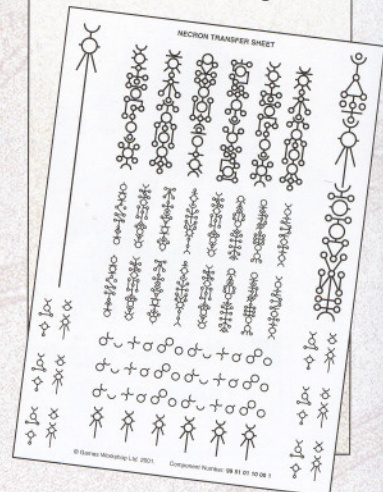 NECRON TRANSFER SHEET
© Games Workshop Ltd. 2001. Component Number: 99 51 01 10 00 1